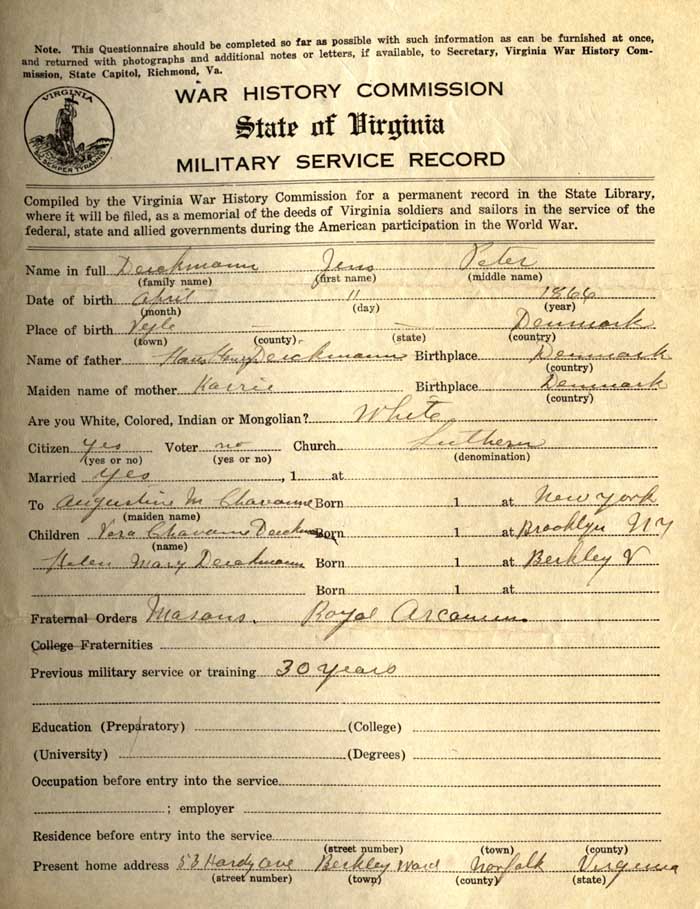 Note. This Questionnaire should be completed so far as possible with such information as can be furnished at once,
and returned with photographs and additional notes or letters, if available, to Secretary, Virginia War History Com-
mission, State Capitol, Richmond, Va.
VIRGINIA
SIC SEMPER TYRANNIS
WAR HISTORY COMMISSION
State of Virginia
MILITARY SERVICE RECORD
Compiled by the Virginia War History Commission for a permanent record in the State Library,
where it will be filed, as a memorial of the deeds of Virginia soldiers and sailors in the service of the
federal, state and allied governments during the American participation in the World War.
Name in full Derckmann Jens Peter
(family name) (first name) (middle name)
Date of birth April 11 1866
(month) (day) (year)
Place of birth Vejle Denmark
(town) (county) (state) (country)
Name of father Hans Derckmann Birthplace Denmark
(country)
Maiden name of mother Karrie Birthplace Denmark
(country)
Are you White, Colored, Indian or Mongolian? White
Citizen yes Voter no Church Luthern
(yes or no) (yes or no) (denomination)
Married yes , 1 at
To Augustine M Chavanne Born 1 at New York
(maiden name)
Children Vera Chavanne Derckmann Born 1 at Brooklyn NY
(name)
Helen Mary Derckmann Born 1 at Berkley V
Born 1 at
Fraternal Orders Masons. Royal Arcanum
College Fraternities
Previous military service or training 30 years
Education (Preparatory) (College)
(University) (Degrees)
Occupation before entry into the service
; employer
Residence before entry into the service
(street number) (town) (county)
Present home address 53 Hardy ave Berkley Ward Norfolk Virginia
(street number) (town) (county) (state)